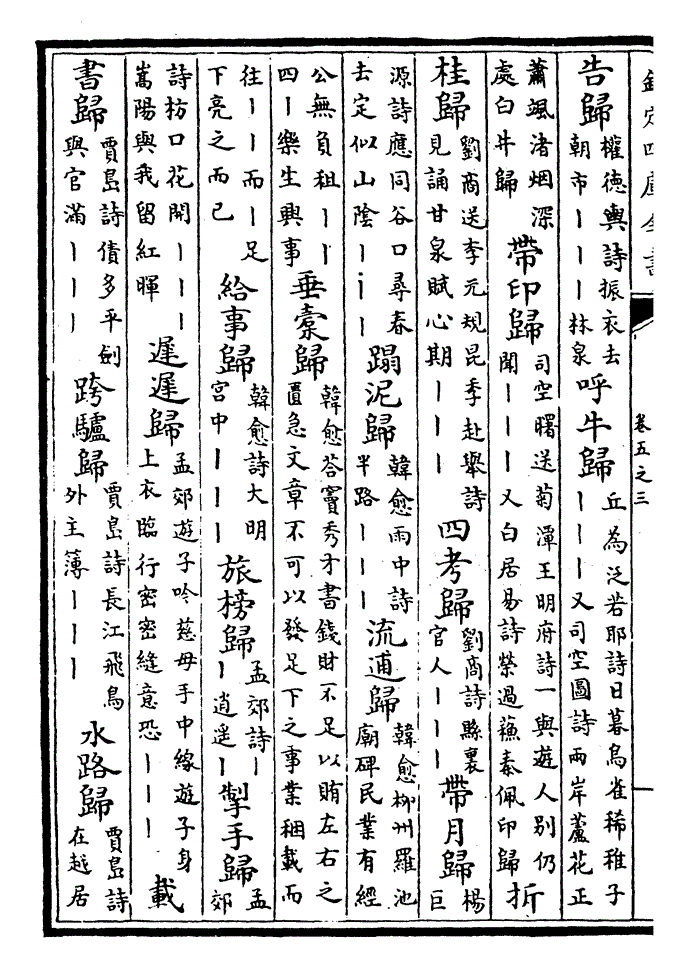 欽定四庫全書 卷五之三
告歸權德輿詩振衣去朝市丨丨丨林泉呼牛歸丘為泛若耶詩日暮鳥雀稀稚子丨丨丨又司空圖詩兩岸蘆花正
蕭颯渚烟深處白牛歸帶印歸司空曙送菊潭王明府詩一與遊人別仍聞丨丨丨又白居易詩榮過蘇秦佩印歸折
桂歸劉商送李元規昆季赴舉詩見誦甘泉賦心期丨丨丨四考歸劉商詩縣襄官人丨丨丨帶月歸楊巨
源詩應同谷口尋春去定似山陰丨丨丨蹋泥歸韓愈雨中詩半路丨丨丨流逋歸韓愈柳州羅池廟碑民業有經
公無負租丨丨四丨樂生興事垂橐歸韓愈荅竇秀才書錢財不足以賄左右之匱急文章不可以發足下之事業稛載而
往丨丨而丨足下亮之而已給事歸韓愈詩大明宮中丨丨丨旅榜歸孟郊詩丨丨逍遥丨掣手歸孟郊
詩枋口花開丨丨丨嵩陽與我留紅暉遲遲歸孟郊遊子吟慈母手中線遊子身上衣臨行密密縫意恐丨丨丨載
書歸賈島詩債多平劍與官滿丨丨丨跨驢歸賈島詩長江飛鳥外主簿丨丨丨水路歸賈島詩在越居